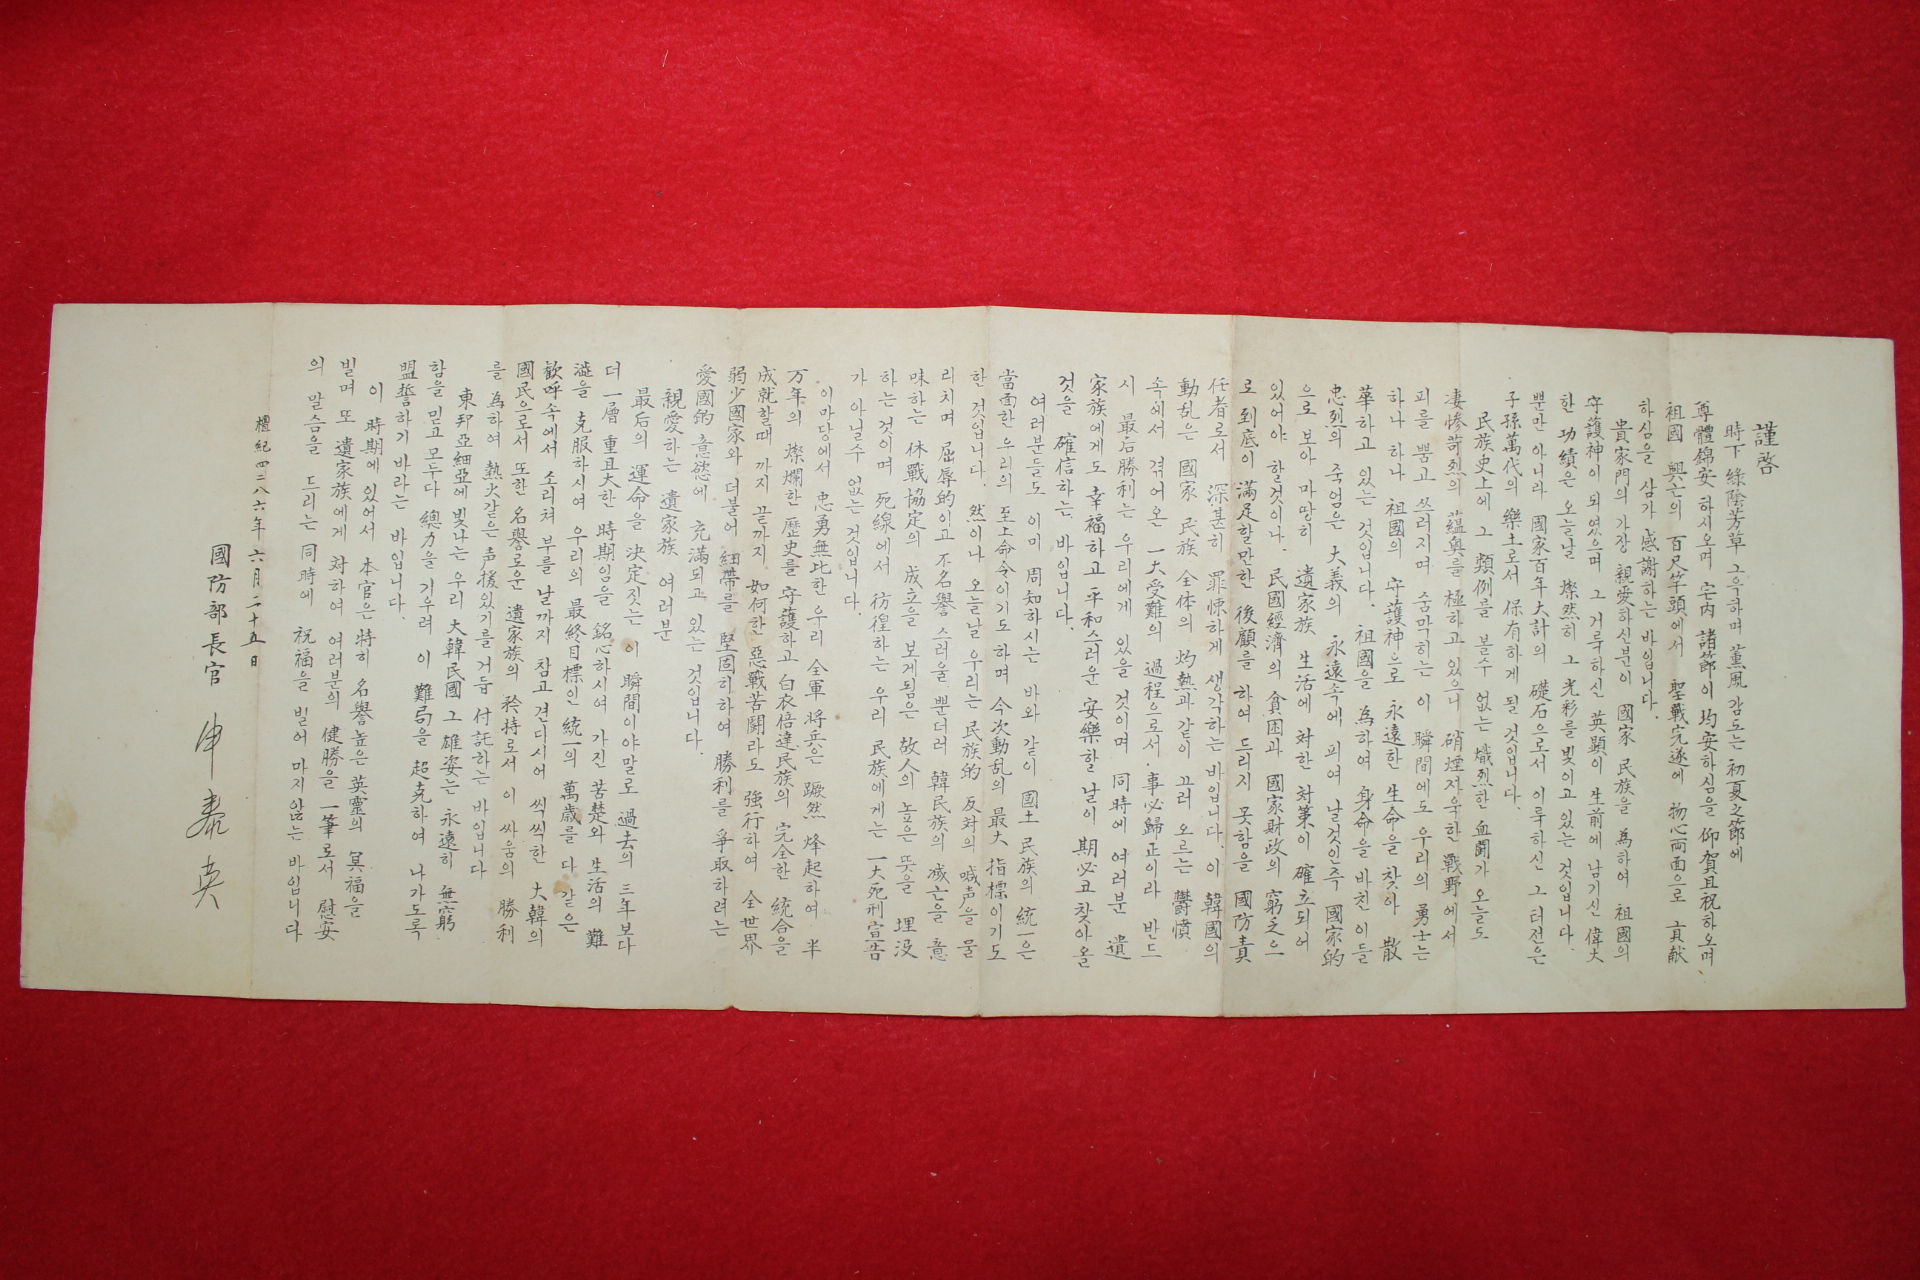 謹啓
時下 綠陰芳草 그윽하며 薰風 감도는 初夏之節에
尊體錦安 하시오며 宅內 諸節이 均安하심을 仰賀且祝하오며
祖國 興亡의 百尺竿頭에서 聖戰完遂에 物心両面으로 貢献
하심을 삼가 感謝하는 바입니다.
貴家門의 가장 親愛하신분이 國家 民族을 為하여 祖國의
守護神이 되였으며 그 거룩하신 英顕이 生前에 남기신 偉大
한 功績은 오늘날 燦然히 그 光彩를 빛이고 있는 것입니다.
뿐만 아니라 國家百年大計의 礎石으로서 이룩하신 그 터전은
子孫萬代의 樂土로서 保有하게 될 것입니다.
民族史上에 그 類例를 볼수 없는 熾烈한 血鬪가 오늘도
凄惨苛烈의 蘊奥를 極하고 있으니 硝煙자욱한 戰野에서
피를 뿜고 쓰러지며 숨막히는 이 瞬間에도 우리의 勇士는
하나 하나 祖國의 守護神으로 永遠한 生命을 찾아 散
華하고 있는 것입니다. 祖國을 為하여 身命을 바친 이들
忠烈의 죽엄은 大義의 永遠속에 피여 날것인즉 國家的
으로 보아 마땅히 遺家族 生活에 対한 対策이 確立되어
있어야 할것이나. 民國經濟의 貧困과 國家財政의 窮乏으
로 到底이 滿足할만한 後顧를 하여 드리지 못함을 國防責
任者로서 深甚히 罪悚하게 生각하는 바입니다. 이 韓國의
動乱은 國家 民族 全体의 灼熱과 같이 끄러 오르는 鬱憤
속에서 겪어온 一大受難의 過程으로서 事必歸正이라 반드
시 最后勝利는 우리에게 있을 것이며 同時에 여러분 遺
家族에게도 幸福하고 平和스러운 安樂할 날이 期必코 찾아 올
것을 確信하는 바입니다.
여러분들도 이미 周知하시는 바와 같이 國土 民族의 統一은
當面한 우리의 至上命令이기도 하며 今次動乱의 最大 指標이기도
한 것입니다. 然이나 오늘날 우리는 民族的 反対의 喊声을 물
리치며 屈辱的이고 不名譽 스러울 뿐더러 韓民族의 滅亡을 意
味하는 休戰協定의 成立을 보게됨은 故人의 높은 뜻을 埋没
하는 것이며 死線에서 彷徨하는 우리 民族에게는 一大死刑宣告
가 아닐수 없는 것입니다.
이마당에서 忠勇無比한 우리 全軍 将兵은 蹶然 烽起하여 半
万年의 燦爛한 歷史를 守護하고 白衣倍達民族의 完全한 統合을
成就할때 까지 끝까지. 如何한 惡戰苦鬪라도 強行하여 全世界
弱少國家와 더불어 紐帶를 堅固히하여 勝利를 爭取하려는
愛國的 意慾에 充滿되고 있는 것입니다.
親愛하는 遺家族 여러분
最后의 運命을 決定짓는 이 瞬間이야말로 過去의 三年보다
더 一層 重且大한 時期임을 銘心하시여 가진 苦楚와 生活의 難
澁을 克服하시여 우리의 最終目標인 統一의 萬歳를 다 같은
歓呼속에서 소리쳐 부를 날까지 참고 견디시어 씩씩한 大韓의
國民으로서 또한 名譽로운 遺家族의 矜持로서 이 싸움의 勝利
를 為하여 熱火같은 声援있기를 거듭 付託하는 바입니다
東邦亞細亞에 빛나는 우리 大韓民國 그 雄姿는 永遠히 無窮
함을 믿고 모두다 總力을 기우려 이 難局을 超克하여 나가도록
盟誓하기 바라는 바입니다.
이 時期에 있어서 本官은 特히 名譽높은 英靈의 冥福을
빌며 또 遺家族에게 対하여 여러분의 健勝을 一筆로서 慰安
의 말슴을 드리는 同時에 祝福을 빌어 마지않는 바입니다
檀紀四二八六年 六月二十五日
國防部長官 申泰英